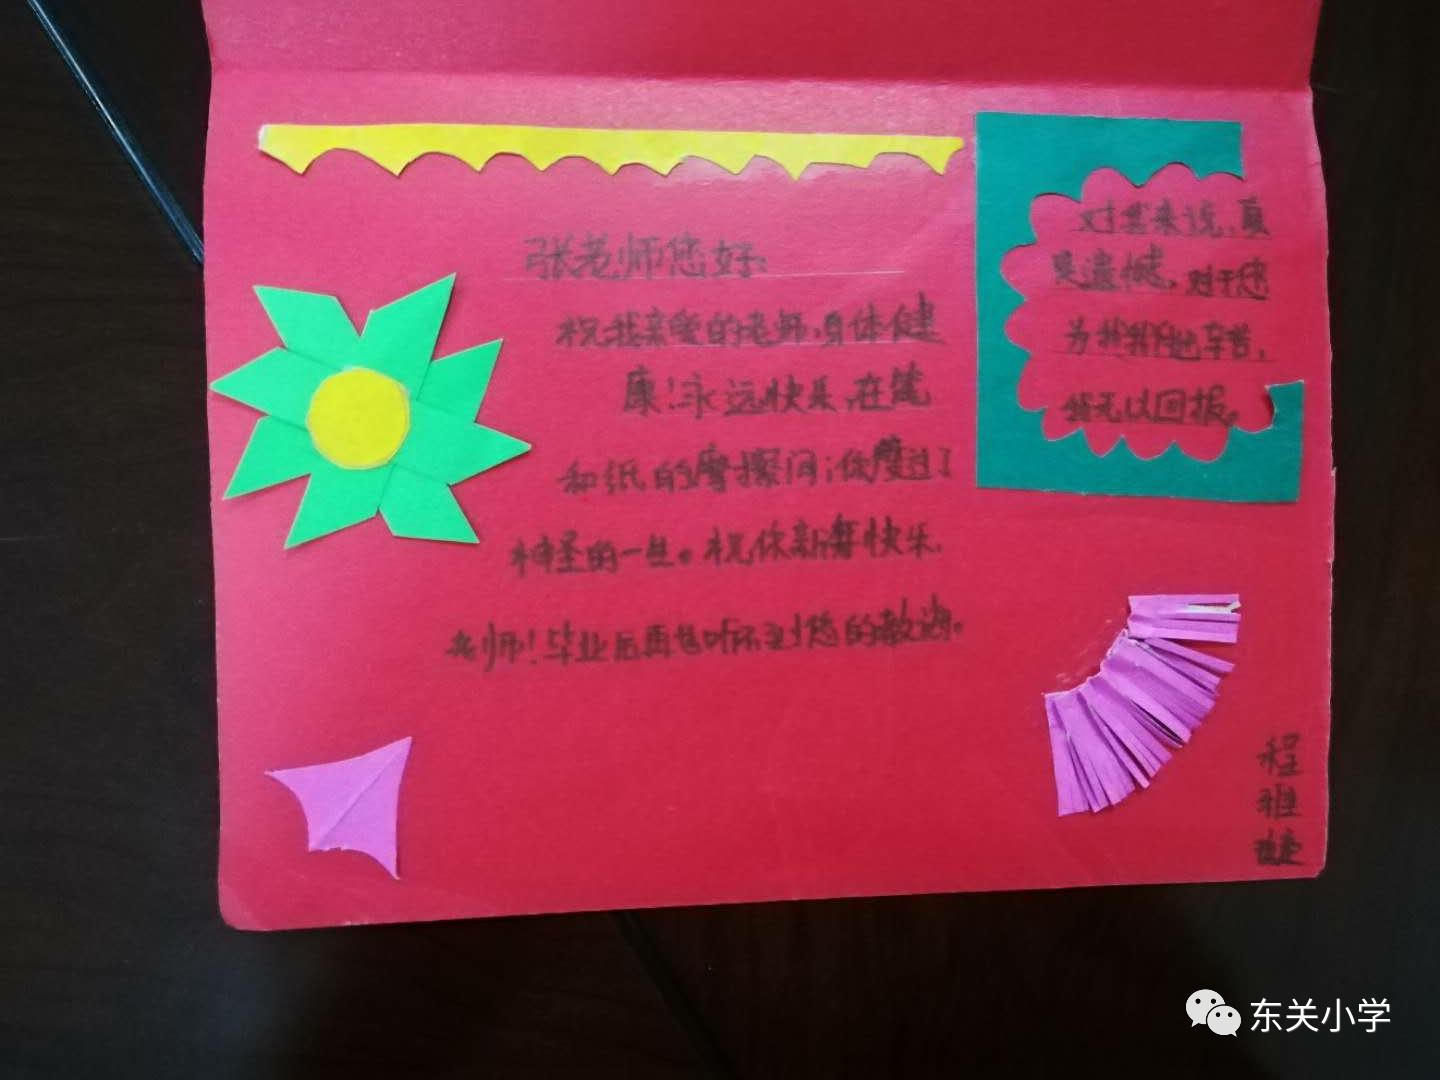 张老师您好:
祝我亲爱的老师,身体健
康!永远快乐,在笔
和纸的摩擦间;你度过了
神圣的一生。祝你新年快乐,
老师!毕业后再也听不到您的教诲。
对我来说,真
是遗憾,对于您
为我们的辛苦,
我无以回报。
程
雅
婕
东关小学